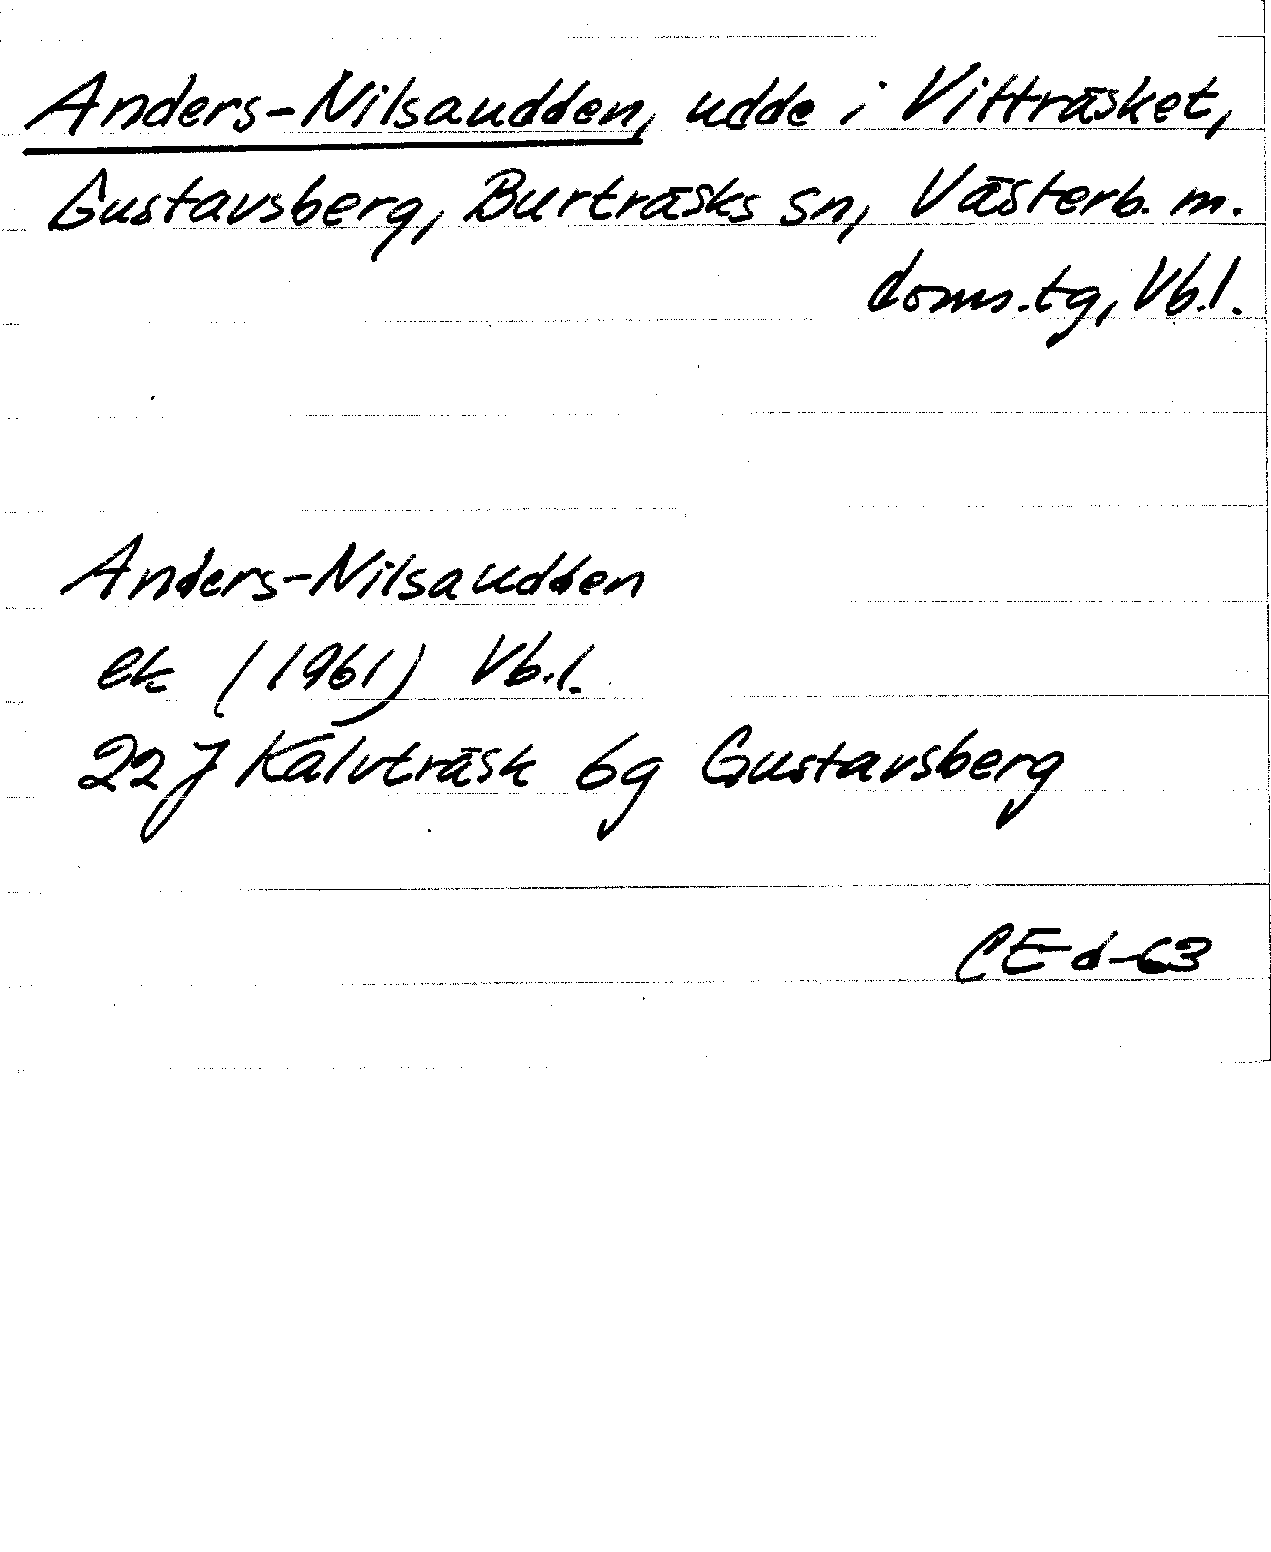 Anders-Nilsaudden, udde i Vitträsket,
Gustavsberg, Burträsks sn, Västerb. m.
doms.tg, Vb.l.
Anders-Nilsaudden
ek (1961) Vb.l.
22J Kalvträsk 6g Gustavsberg
CE d-63